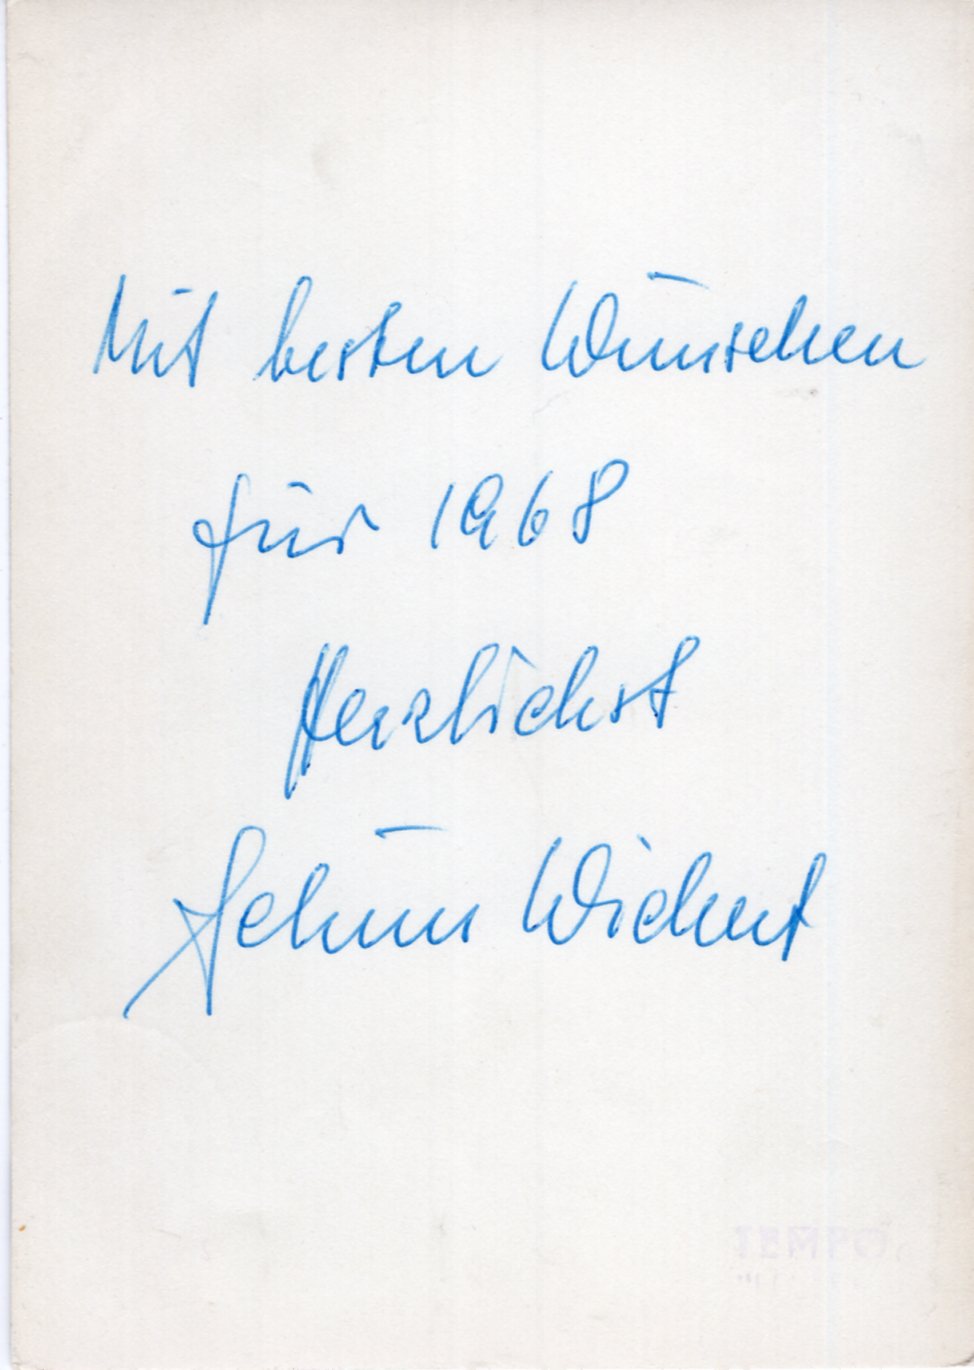 Mit besten Wünschen
für 1968
Herzlichst
Wickert
TEMPO